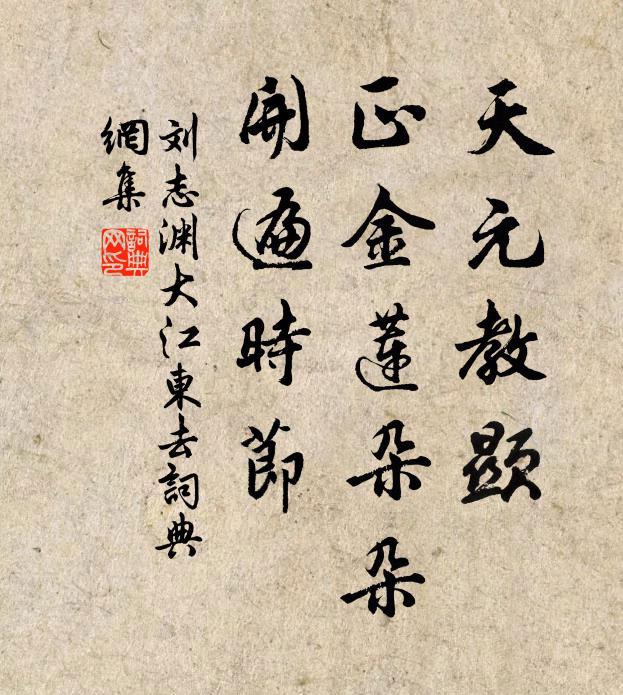 天元教顯
正金蓮朵朵
開遍時節
刘志渊大江東去詞典
網集
詞典网印